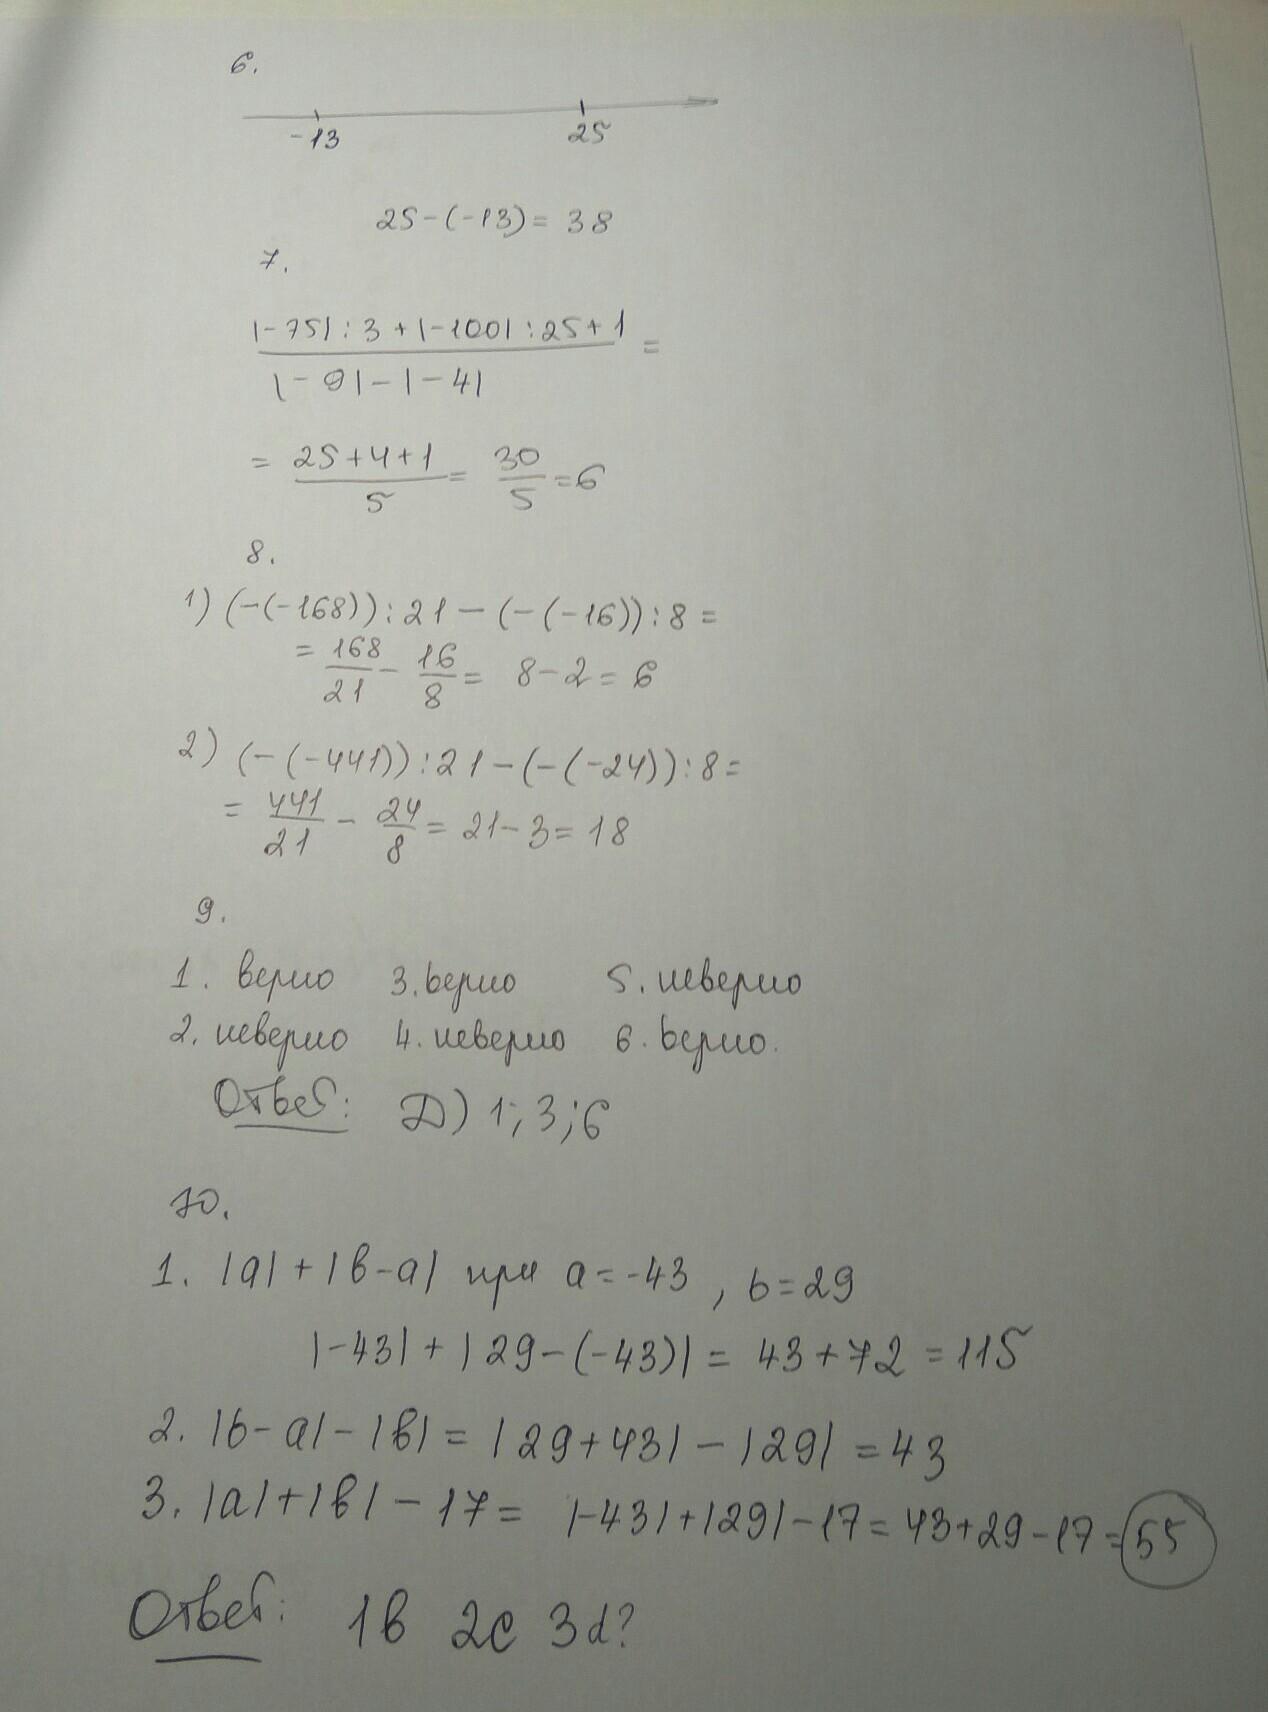 6.
-13 25
25-(-13)= 38
7.
|-75| : 3 + |-100| : 25 + 1 =
|-9| - |-4|
= 25+4+1 = 30 = 6
5 5
8.
1) (-(-168)) : 21 - (-(-16)) : 8 =
= 168 - 16 = 8-2 = 6
21 8
2) (-(-441)) : 21 - (-(-24)) : 8 =
= 441 - 24 = 21-3 = 18
21 8
9.
1. верно 3. верно 5. неверно
2. неверно 4. неверно 6. верно.
Ответ: Д) 1; 3; 6
10.
1. |a| + |в-a| при a = -43, b = 29
|-43| + |29-(-43)| = 43+72 = 115
2. |b-a| - |в| = |29+43| - |29| = 43
3. |a| + |в| - 17 = |-43| + |29| - 17 = 43+29-17 = 55
Ответ: 1в 2c 3d?